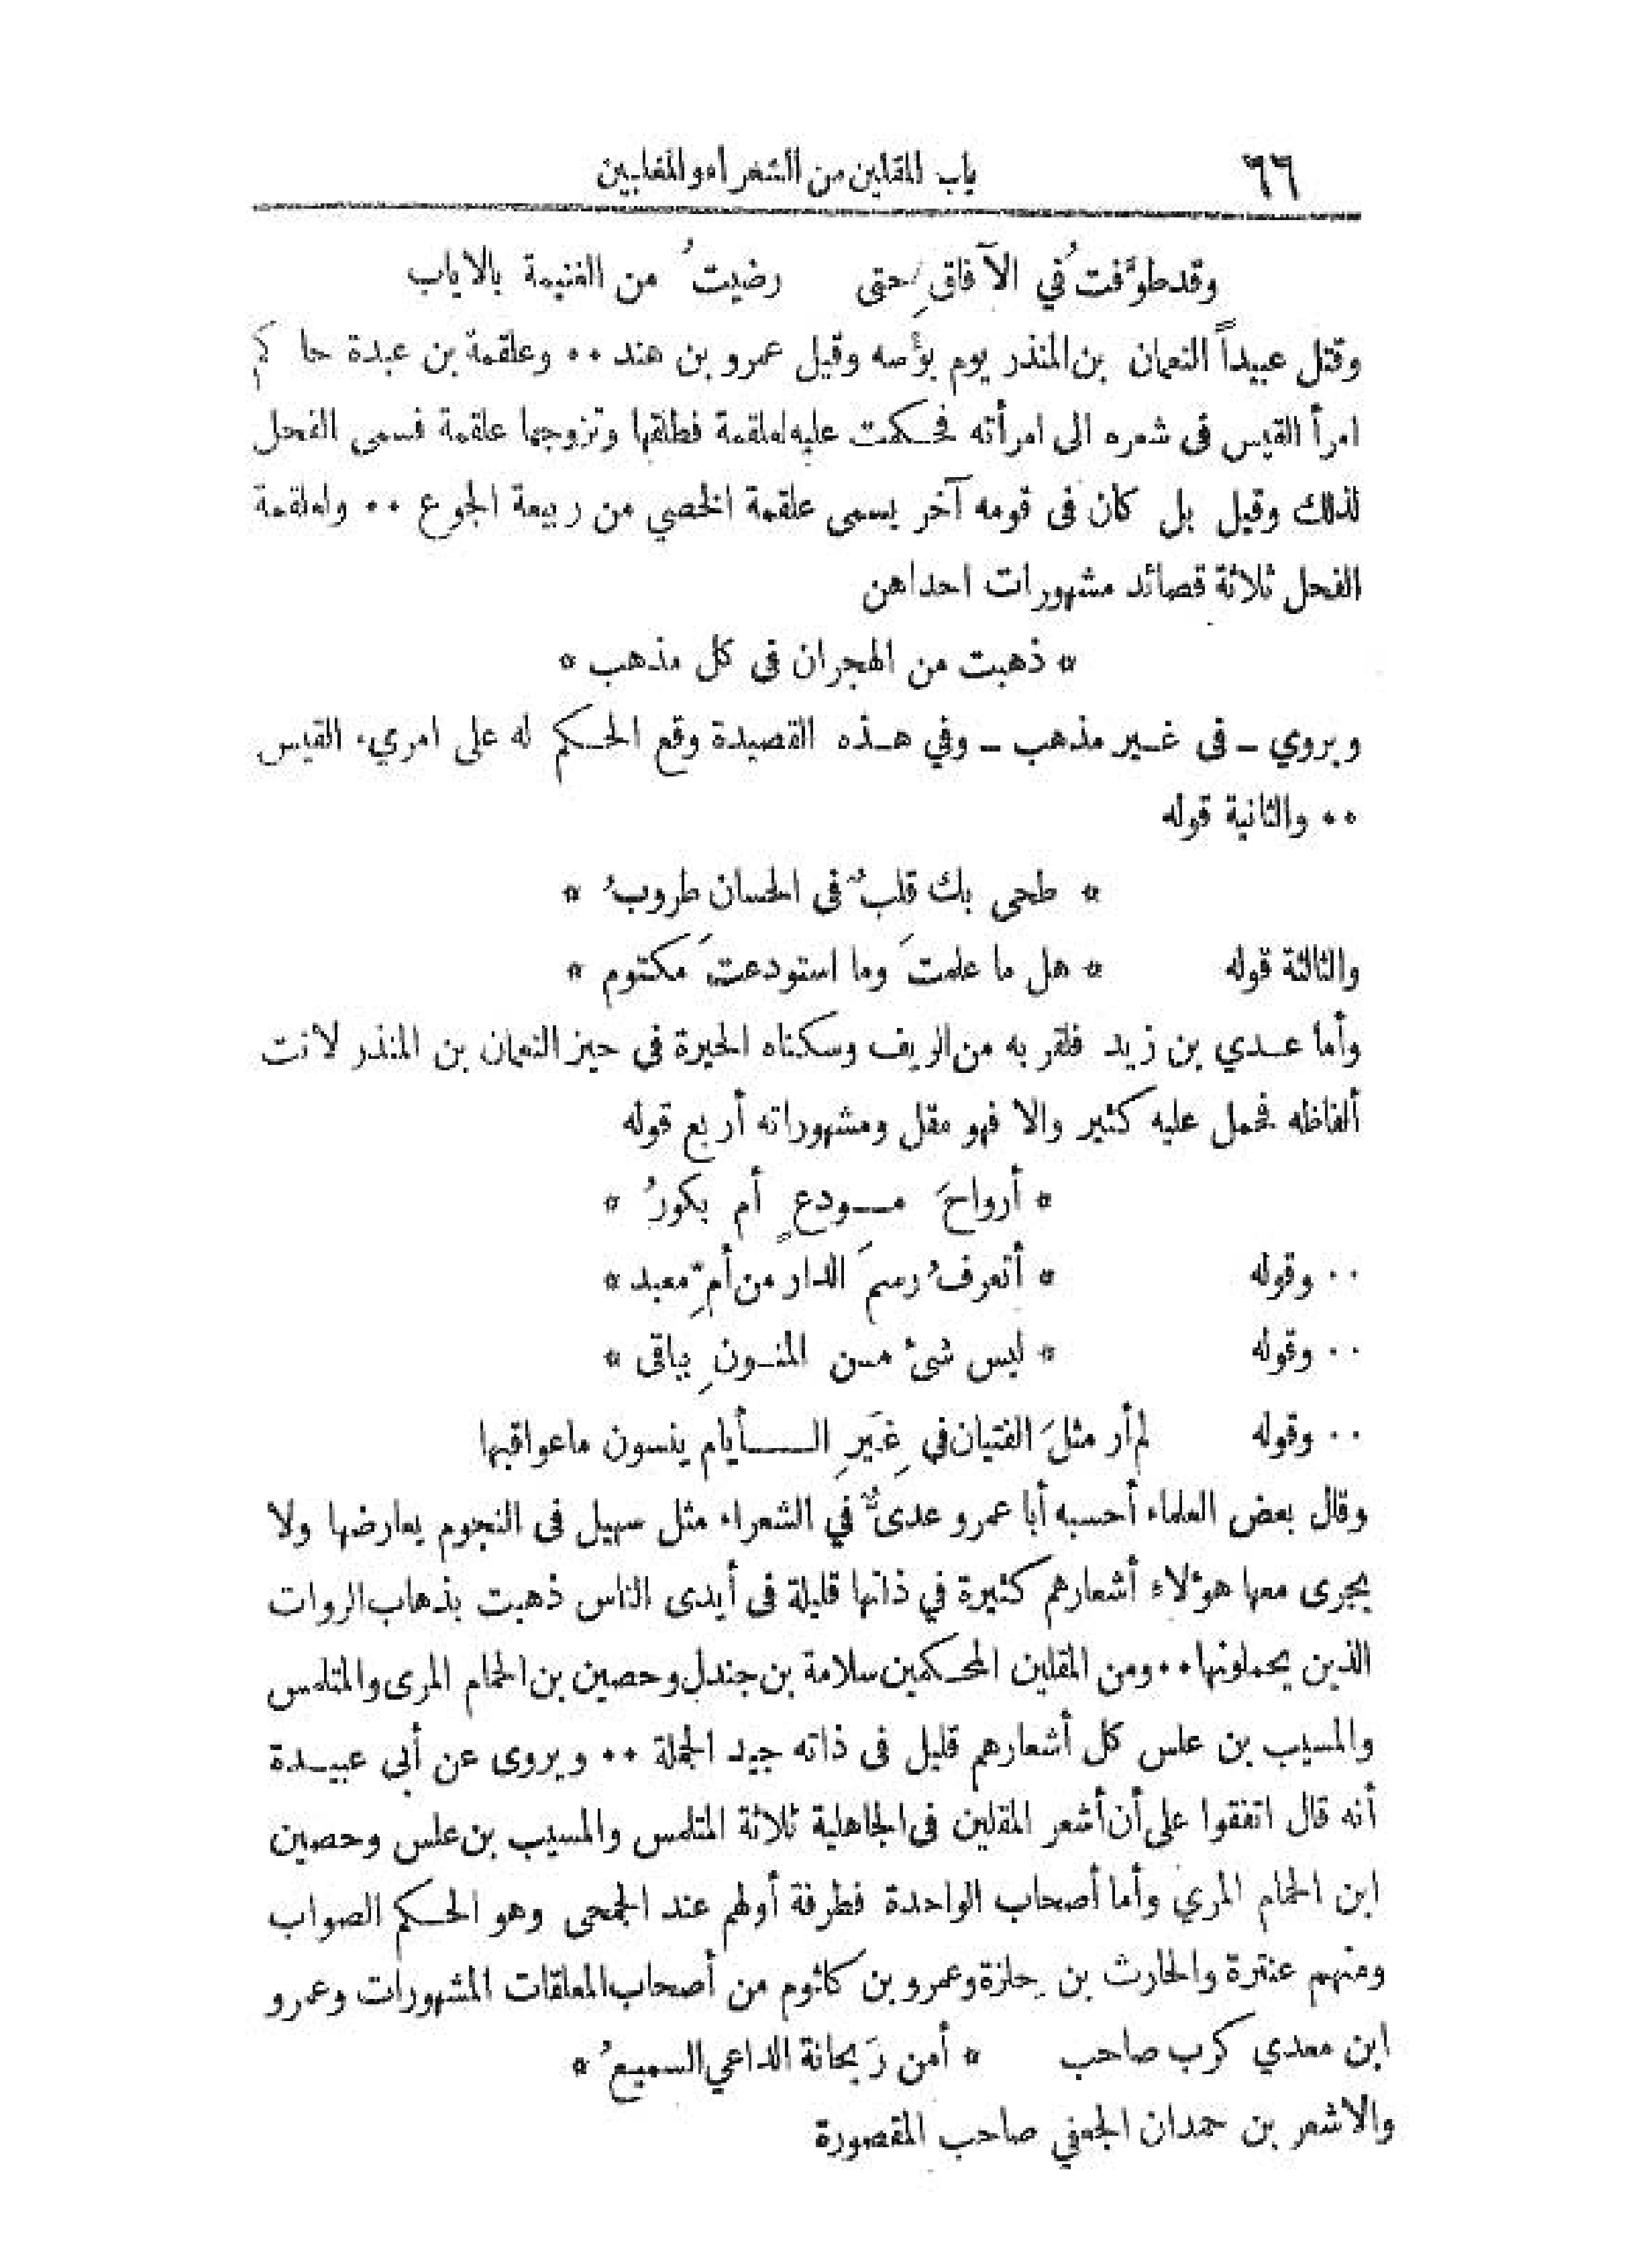 ٦٦ باب المقلين من الشعراء والمغلبين
وقد طوَّفتُ في الآفاقِ حتى رضيتُ من الغنيمة بالاياب
وقتل عبيداً النعمان بن المنذر يوم بؤسه وقيل عمرو بن هند ٠٠ وعلقمة بن عبدة حاكم
امرأ القيس فى شعره الى امرأته فحكمت عليه لعلقمة فطلقها وتزوجها علقمة فسمى الفحل
لذلك وقيل بل كان فى قومه آخر يسمى علقمة الخصي من ربيعة الجوع ٠٠ ولعلقمة
الفحل ثلاثة قصائد مشهورات احداهن
* ذهبت من الهجران فى كل مذهب *
ويروي ــ فى غير مذهب ــ وفي هذه القصيدة وقع الحكم له على امريء القيس
٠٠ والثانية قوله
* طحى بك قلبٌ فى الحسان طروبُ *
والثالثة قوله * هل ما علمتَ وما استودعتَ مكتوم *
وأما عدي بن زيد فلقربه من الريف وسكناه الحيرة فى حيز النعمان بن المنذر لانت
ألفاظه فحمل عليه كثير والا فهو مقل ومشهوراته أربع قوله
* أرواحَ مودعٍ أم بكورُ *
٠٠ وقوله * أتعرفُ رسمَ الدار من أمِّ معبد *
٠٠ وقوله * ليس شئ من المنونِ بباقى *
٠٠ وقوله لم أر مثلَ الفتيان في غِيَرِ الــأيام ينسون ما عواقبها
وقال بعض العلماء أحسبه أبا عمرو عدىٌّ في الشعراء مثل سهيل فى النجوم يعارضها ولا
يجرى معها هؤلاء أشعارهم كثيرة في ذاتها قليلة فى أيدى الناس ذهبت بذهاب الروات
الذين يحملونها ٠٠ ومن المقلين المحكمين سلامة بن جندل وحصين بن الحمام المرى والمتلمس
والمسيب بن علس كل أشعارهم قليل فى ذاته جيد الجملة ٠٠ ويروى عن أبي عبيدة
أنه قال اتفقوا على أن أشعر المقلين فى الجاهلية ثلاثة المتلمس والمسيب بن علس وحصين
ابن الحمام المري وأما أصحاب الواحدة فطرفة أولهم عند الجمحى وهو الحكم الصواب
ومنهم عنترة والحارث بن حلزة وعمرو بن كلثوم من أصحاب المعلقات المشهورات وعمرو
ابن معدي كرب صاحب * أمن رَيحانة الداعي السميعُ *
والاشعر بن حمدان الجعفي صاحب المقصورة